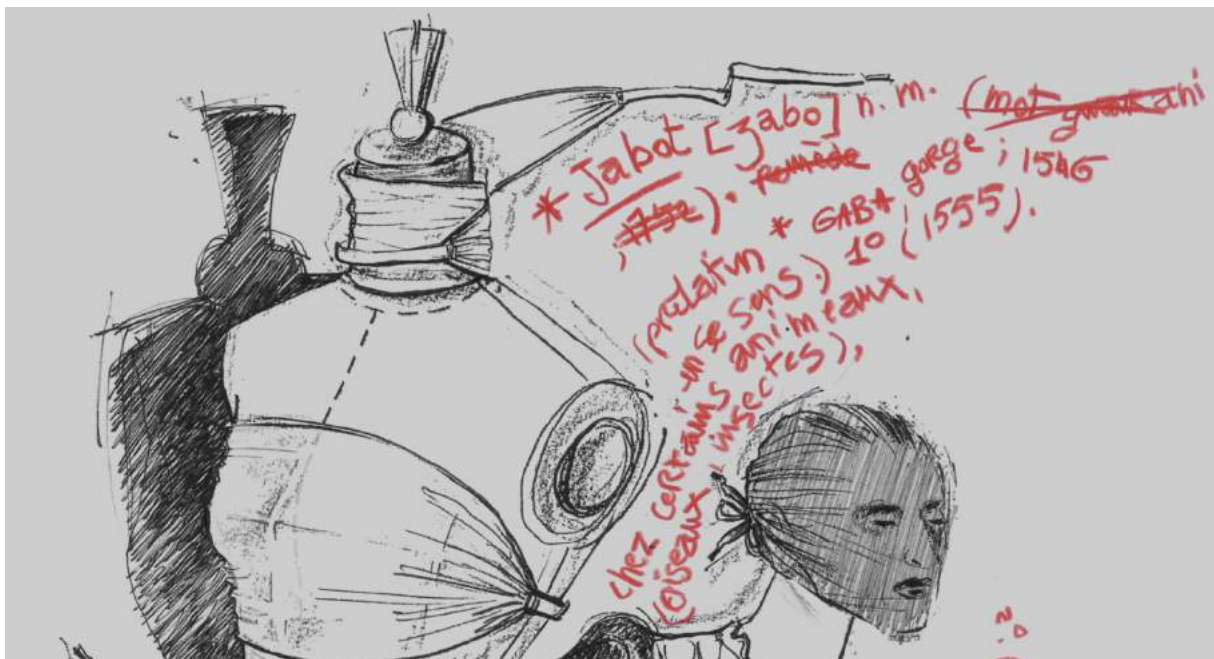 * Jabot [ʒabo] n. m. (mot
). remède
(prélatin * GABA gorge ; 1546
en ce sens.) 1º (1555).
chez certains animeaux,
(oiseaux, insectes),
2º